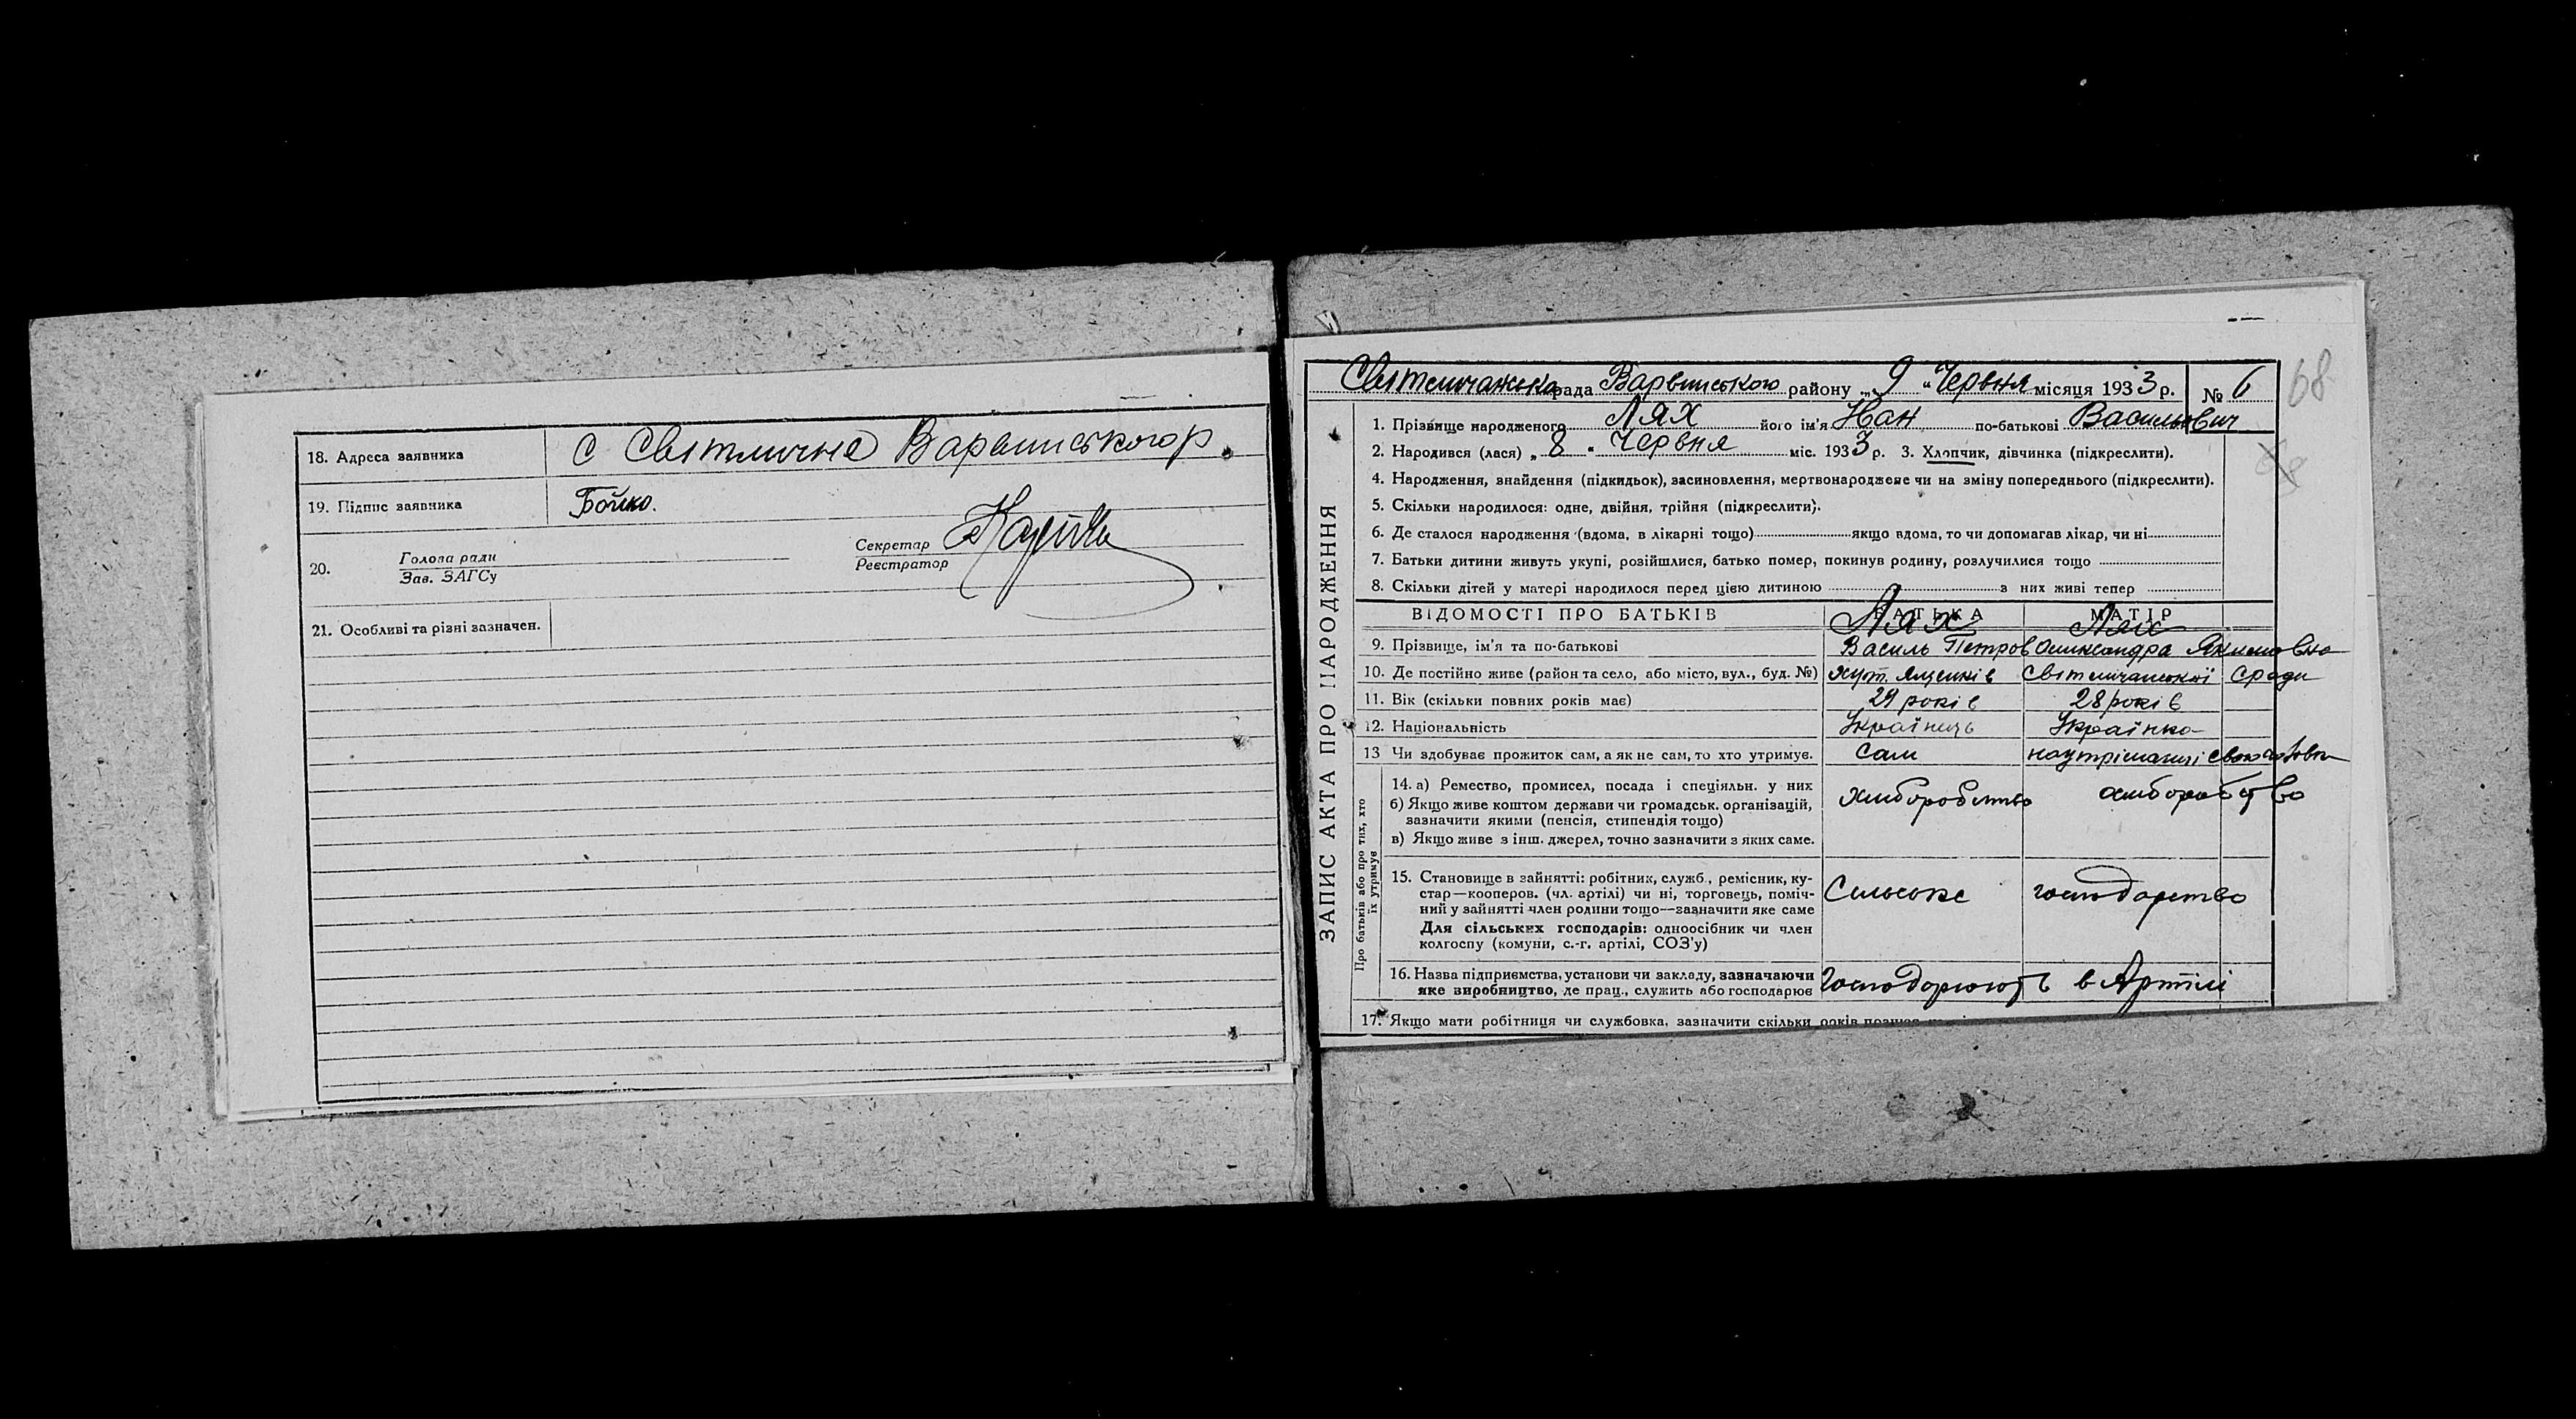 18. Адреса заявника с Світличне Варвинського р.
19. Підпис заявника Бойко.
20. Голова ради
Зав. ЗАГСу
Секретар
Реєстратор
21. Особливі та різні зазначен.
68
ЗАПИС АКТА ПРО НАРОДЖЕННЯ
Світличанська рада Варвинського району „9“ Червня місяця 1933 р. № 6
1. Прізвище народженого Лях його ім'я Іван по-батькові Васильович
2. Народився (лася) „8“ Червня міс. 1933 р. 3. Хлопчик, дівчинка (підкреслити).
4. Народження, знайдення (підкидьок), засиновлення, мертвонароджене чи на зміну попереднього (підкреслити).
5. Скільки народилося: одне, двійня, трійня (підкреслити).
6. Де сталося народження (вдома, в лікарні тощо) якщо вдома, то чи допомагав лікар, чи ні
7. Батьки дитини живуть укупі, розійшлися, батько помер, покинув родину, розлучилися тощо
8. Скільки дітей у матері народилося перед цією дитиною з них живі тепер
ВІДОМОСТІ ПРО БАТЬКІВ БАТЬКА МАТІР
Лях Лях
9. Прізвище, ім'я та по-батькові Василь Петров Олександра Якимовна
10. Де постійно живе (район та село, або місто, вул., буд. №) хут. Ященків Світличанської с ради
11. Вік (скільки повних років має) 29 років 28 років
12. Національність Українець Українка
13 Чи здобуває прожиток сам, а як не сам, то хто утримує. сам
Про батьків або про тих, хто їх утримує
14. а) Ремество, промисел, посада і спеціяльн. у них хліборобство хліборобство
б) Якщо живе коштом держави чи громадськ. організацій,
зазначити якими (пенсія, стипендія тощо)
в) Якщо живе з інш. джерел, точно зазначити з яких саме.
15. Становище в зайнятті: робітник, служб., ремісник, ку-
стар—кооперов. (чл. артілі) чи ні, торговець, поміч- Сильське господарство
ний у зайнятті член родини тощо—зазначити яке саме
Для сільських господарів: одноосібник чи член
колгоспу (комуни, с.-г. артілі, СОЗ'у)
16. Назва підприємства, установи чи закладу, зазначаючи
яке виробництво, де прац., служить або господарює Господорюють в Артілі
17. Якщо мати робітниця чи службовка, зазначити скільки років